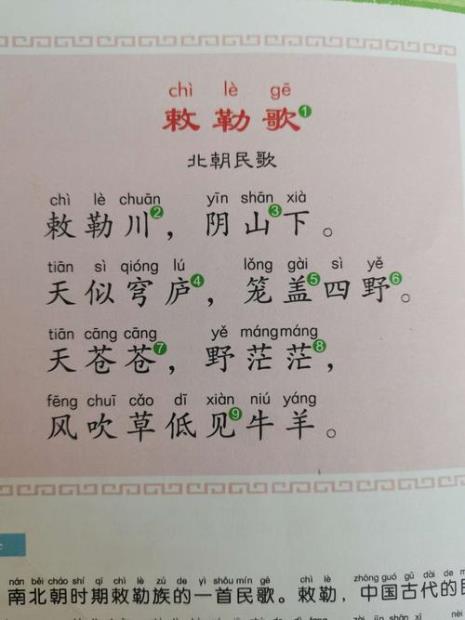 chì lè gē
敕勒歌①
北朝民歌
chì lè chuān yīn shān xià
敕勒川②，阴山③下。
tiān sì qióng lú lǒng gài sì yě
天似穹庐④，笼盖⑤四野⑥。
tiān cāng cāng yě máng máng
天苍苍⑦，野茫茫⑧，
fēng chuī cǎo dī xiàn niú yáng
风吹草低见⑨牛羊。
nán běi cháo shí qī chì lè zú de yì shǒu mín gē chì lè zhōng guó gǔ dài de
南北朝时期敕勒族的一首民歌。敕勒，中国古代的